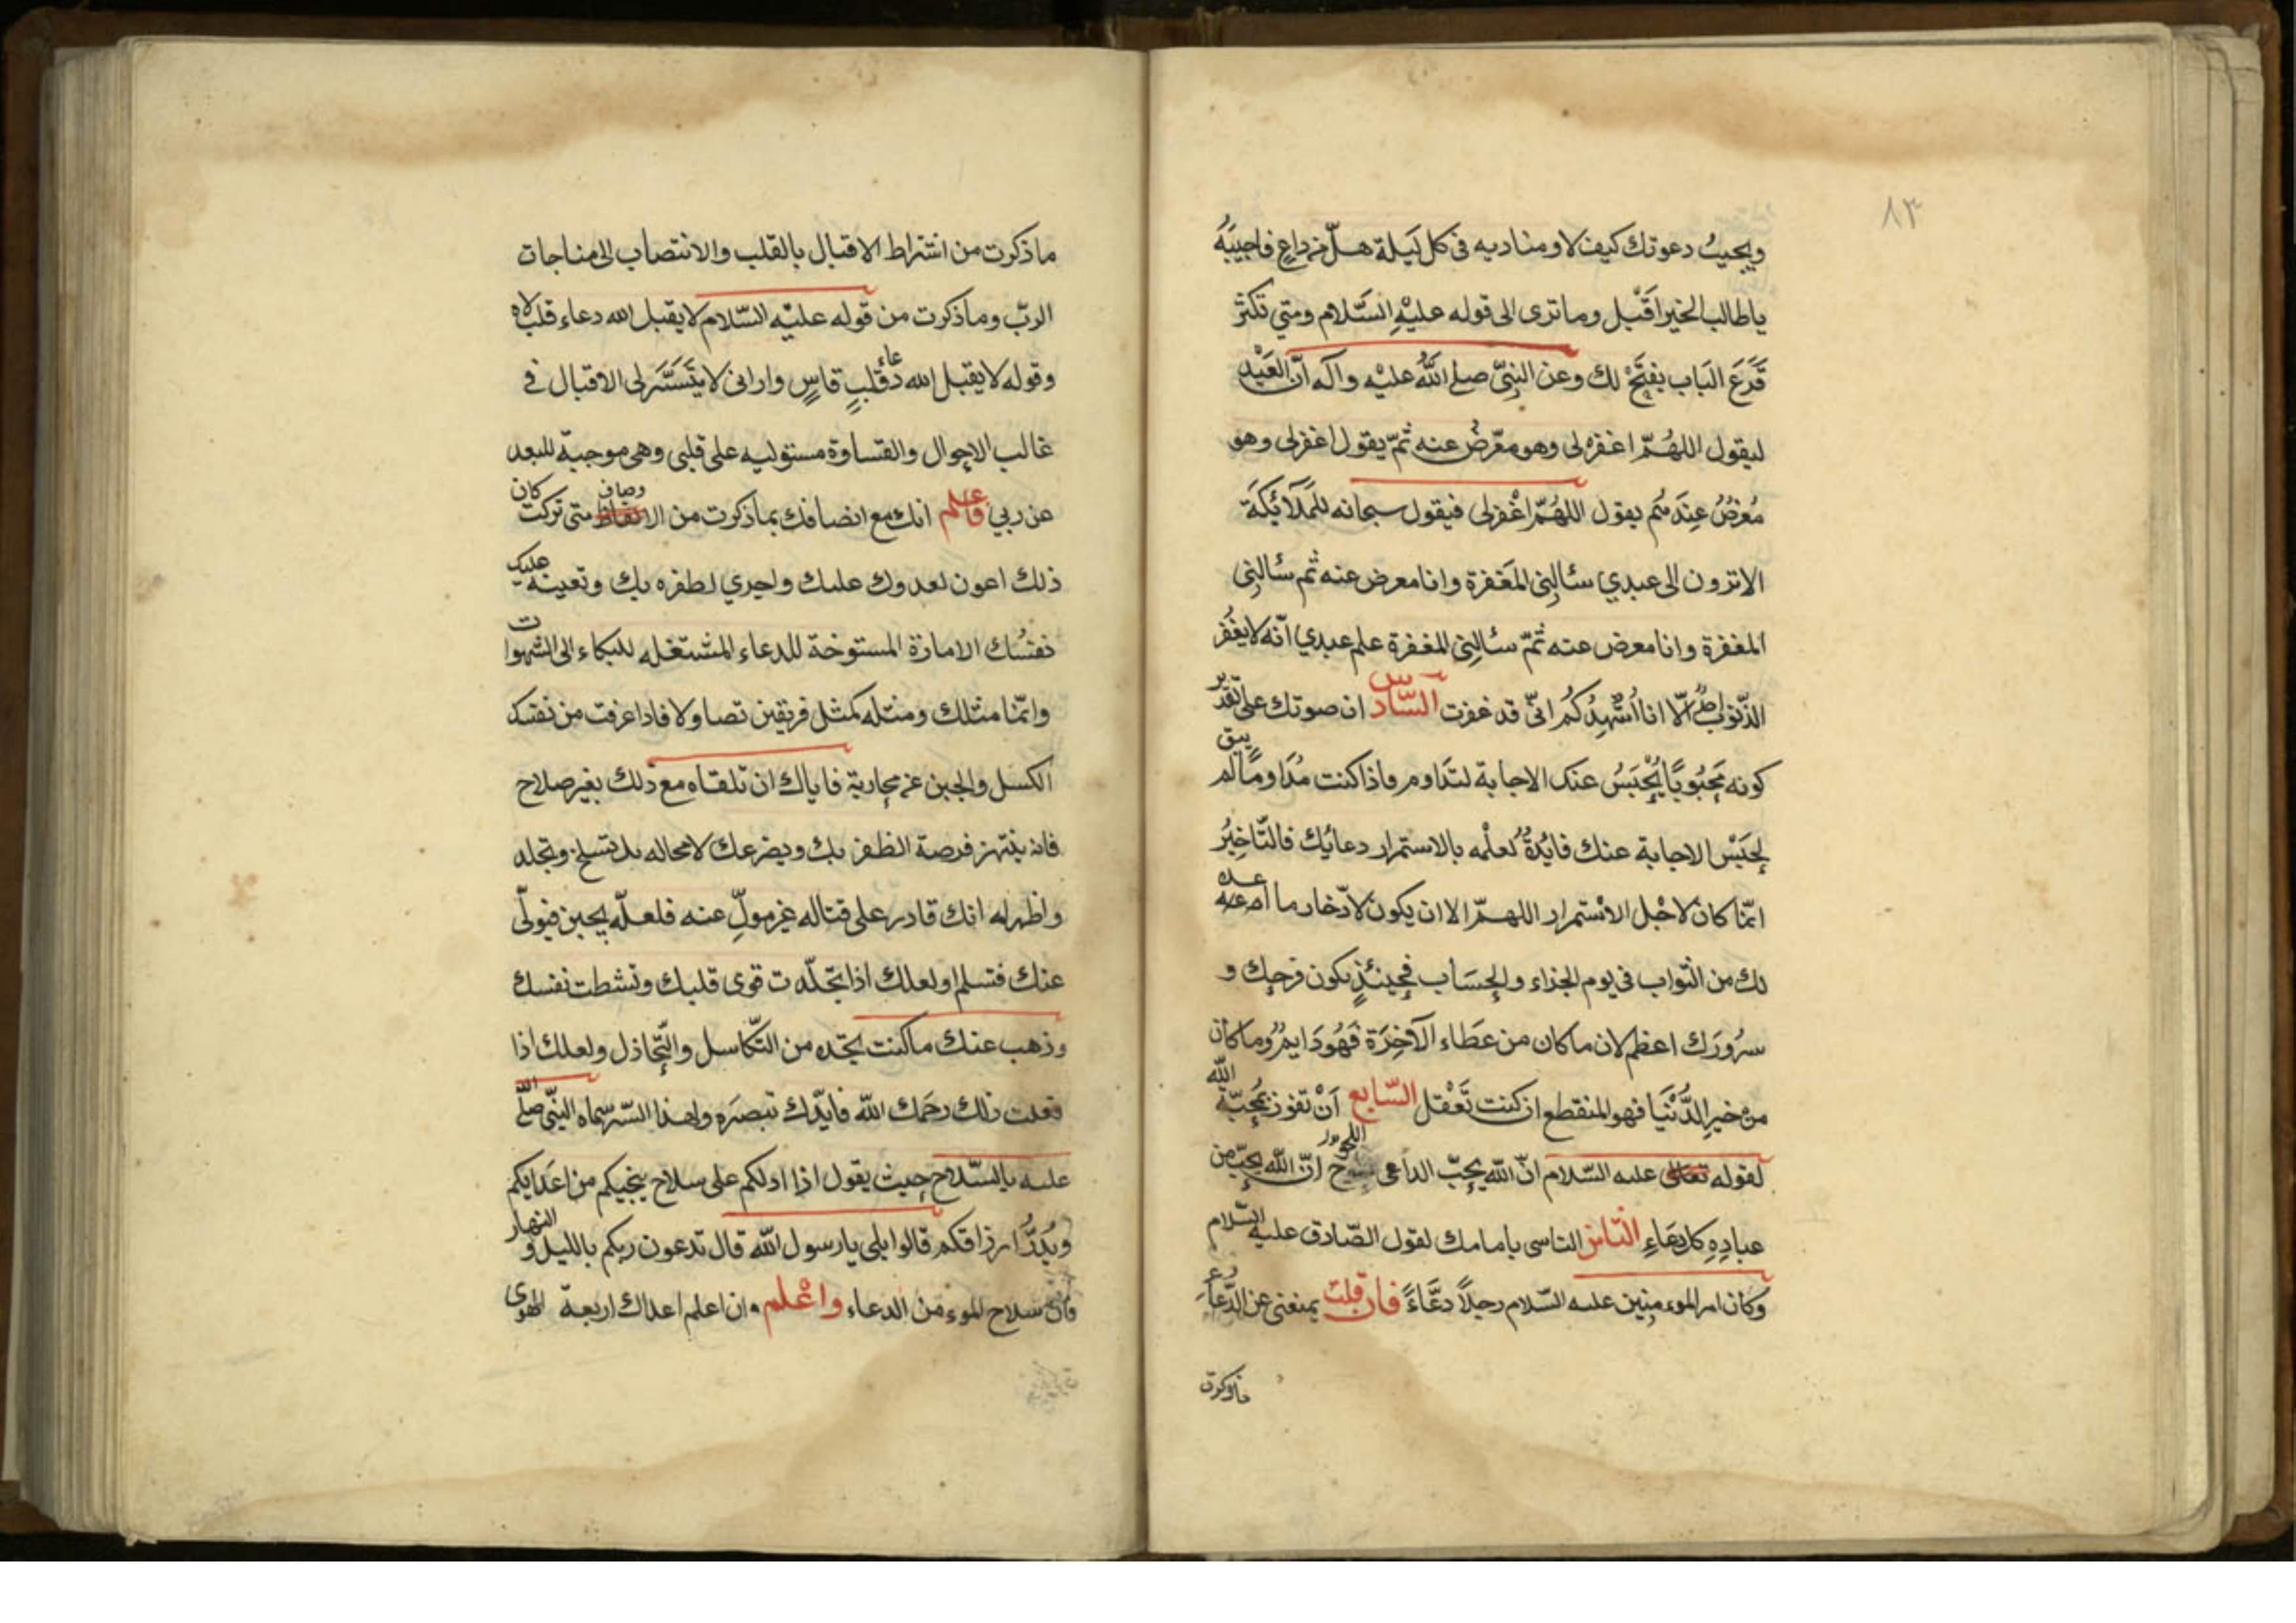 ٨٣
ويجيبُ دعوتك كيف لا ومناديه فى كل ليلة هل من داعٍ فاجيبَهُ
ياطالب الخير اَقْبل وما ترى الى قوله عليْهِ السَّلام ومتي تكثر
قَرَعَ البَاب يفتَحْ لك وعن النبىّ صلى اللهُ عليْه وآله انّ العَبْد
ليقول اللهُمّ اغفر لى وهو معْرض عنه ثمّ يقول اغفر لى وهو
مُعْرضُ عنه ثم يقول اللهُمّ اغْفر لى فيقول سبحانه للمَلَائكَة
الا ترون الى عبدي سئالنِى المَغفرة وانا معرض عنه ثم سئالنِى
المغفرة وانا معرض عنه ثمّ سئالنِى المغفرة علم عبدي انّه لا يغفر
الذّنوب الّا انا اُشْهِدُكُم انّى قد غفرت السَّادس ان صوتك على تقدير
كونه مَحْبُوبًا يُحْبَسُ عنك الاجابة لتدَاوم فاذا كنت مُدَاومًا لم يبق
لِحَبْس الاجابة عنك فايُدةٌ لعلْمه بالاستمرار دعائِك فالتّاخِيْرُ
انّما كان لاجْل الاسْتمرار اللهمّ الا ان يكون لادّخار ما اعده
لك من الثّواب فى يوم الجزاء والحِسَاب فحِينئذٍ يكون فرحِك و
سرُورَك اعظم لان ما كان من عَطَاء الآخِرَة فَهُو دَايم وما كان
من خير الدُّنْيَا فهو المنقطع ان كنت تَعْقل السَّابع اَنْ تفوز بمُحِبّة الله
لقوله تعالى عليه السّلام انّ الله يحِبّ الداعى اللحوح انّ الله يحِبّ من
عبادِهِ كل دعَاءٍ الثّامن التاسى بامامك لقول الصّادق عليه السّلام
وكان امير الموءمنِين عليه السّلام رجلاً دعَّاءً فان قلت يمنعنى عن الدّعَاء
ما ذكرت
ما ذكرت من اشتراط الاقبال بالقلب والانتصاب الى مناجات
الربّ وما ذكرت من قوله عليْه السّلام لا يقبل الله دعاء قلب لاه
وقوله لا يقبل الله دعاء قلْبٍ قاسٍ وارانى لا يتَسَتَّر لى الاقبال فى
غالب الاحوال والقساوة مستوليه على قلبى وهى موجبة للبعد
عن ربي فاعلم انك مع اتصافك بما ذكرت من الاوصاف متى تركت كان
ذلك اعون لعدوك عليك واجري لظفره بك وتعينه عليك
نفسُك الامارة المستوخة للدعاء المشتغله للبكاء الى الشهوات
وانّما مثلك ومثله كمثل فريقين تصاولا فاذا عرفت من نفسك
الكسل والجبن عن محاربة فاياك ان تلقاه مع ذلك بغير صلاح
فانه ينتهز فرصة الظفر بك ويضرعك لامحاله بل تسلح وتجلد
واظهر له انك قادر على قتاله غير مولّ عنه فلعلّه يجبن فيولّى
عنك فتسلم او لعلك اذا تجلّدت قوى قلبك ونشطت نفسك
وذهب عنك ما كنت تجّده من التّكاسل والتّخاذل ولعلك اذا
فعلت ذلك رحمَك الله فايّدك بنصره ولهذا السّر سماه النبىّ صلّى الله
عليه بالسّلاح حيث يقول اذا ادلكم على سلاح ينجيكم من اعدَايكم
ويُدرّ ارزاقكم قالوا بلى يا رسول الله قال تدعون ربكم بالليل و النهار
فان سلاح الموءمن الدعاء واعْلم ان اعلم اعداك اربعة الهوى